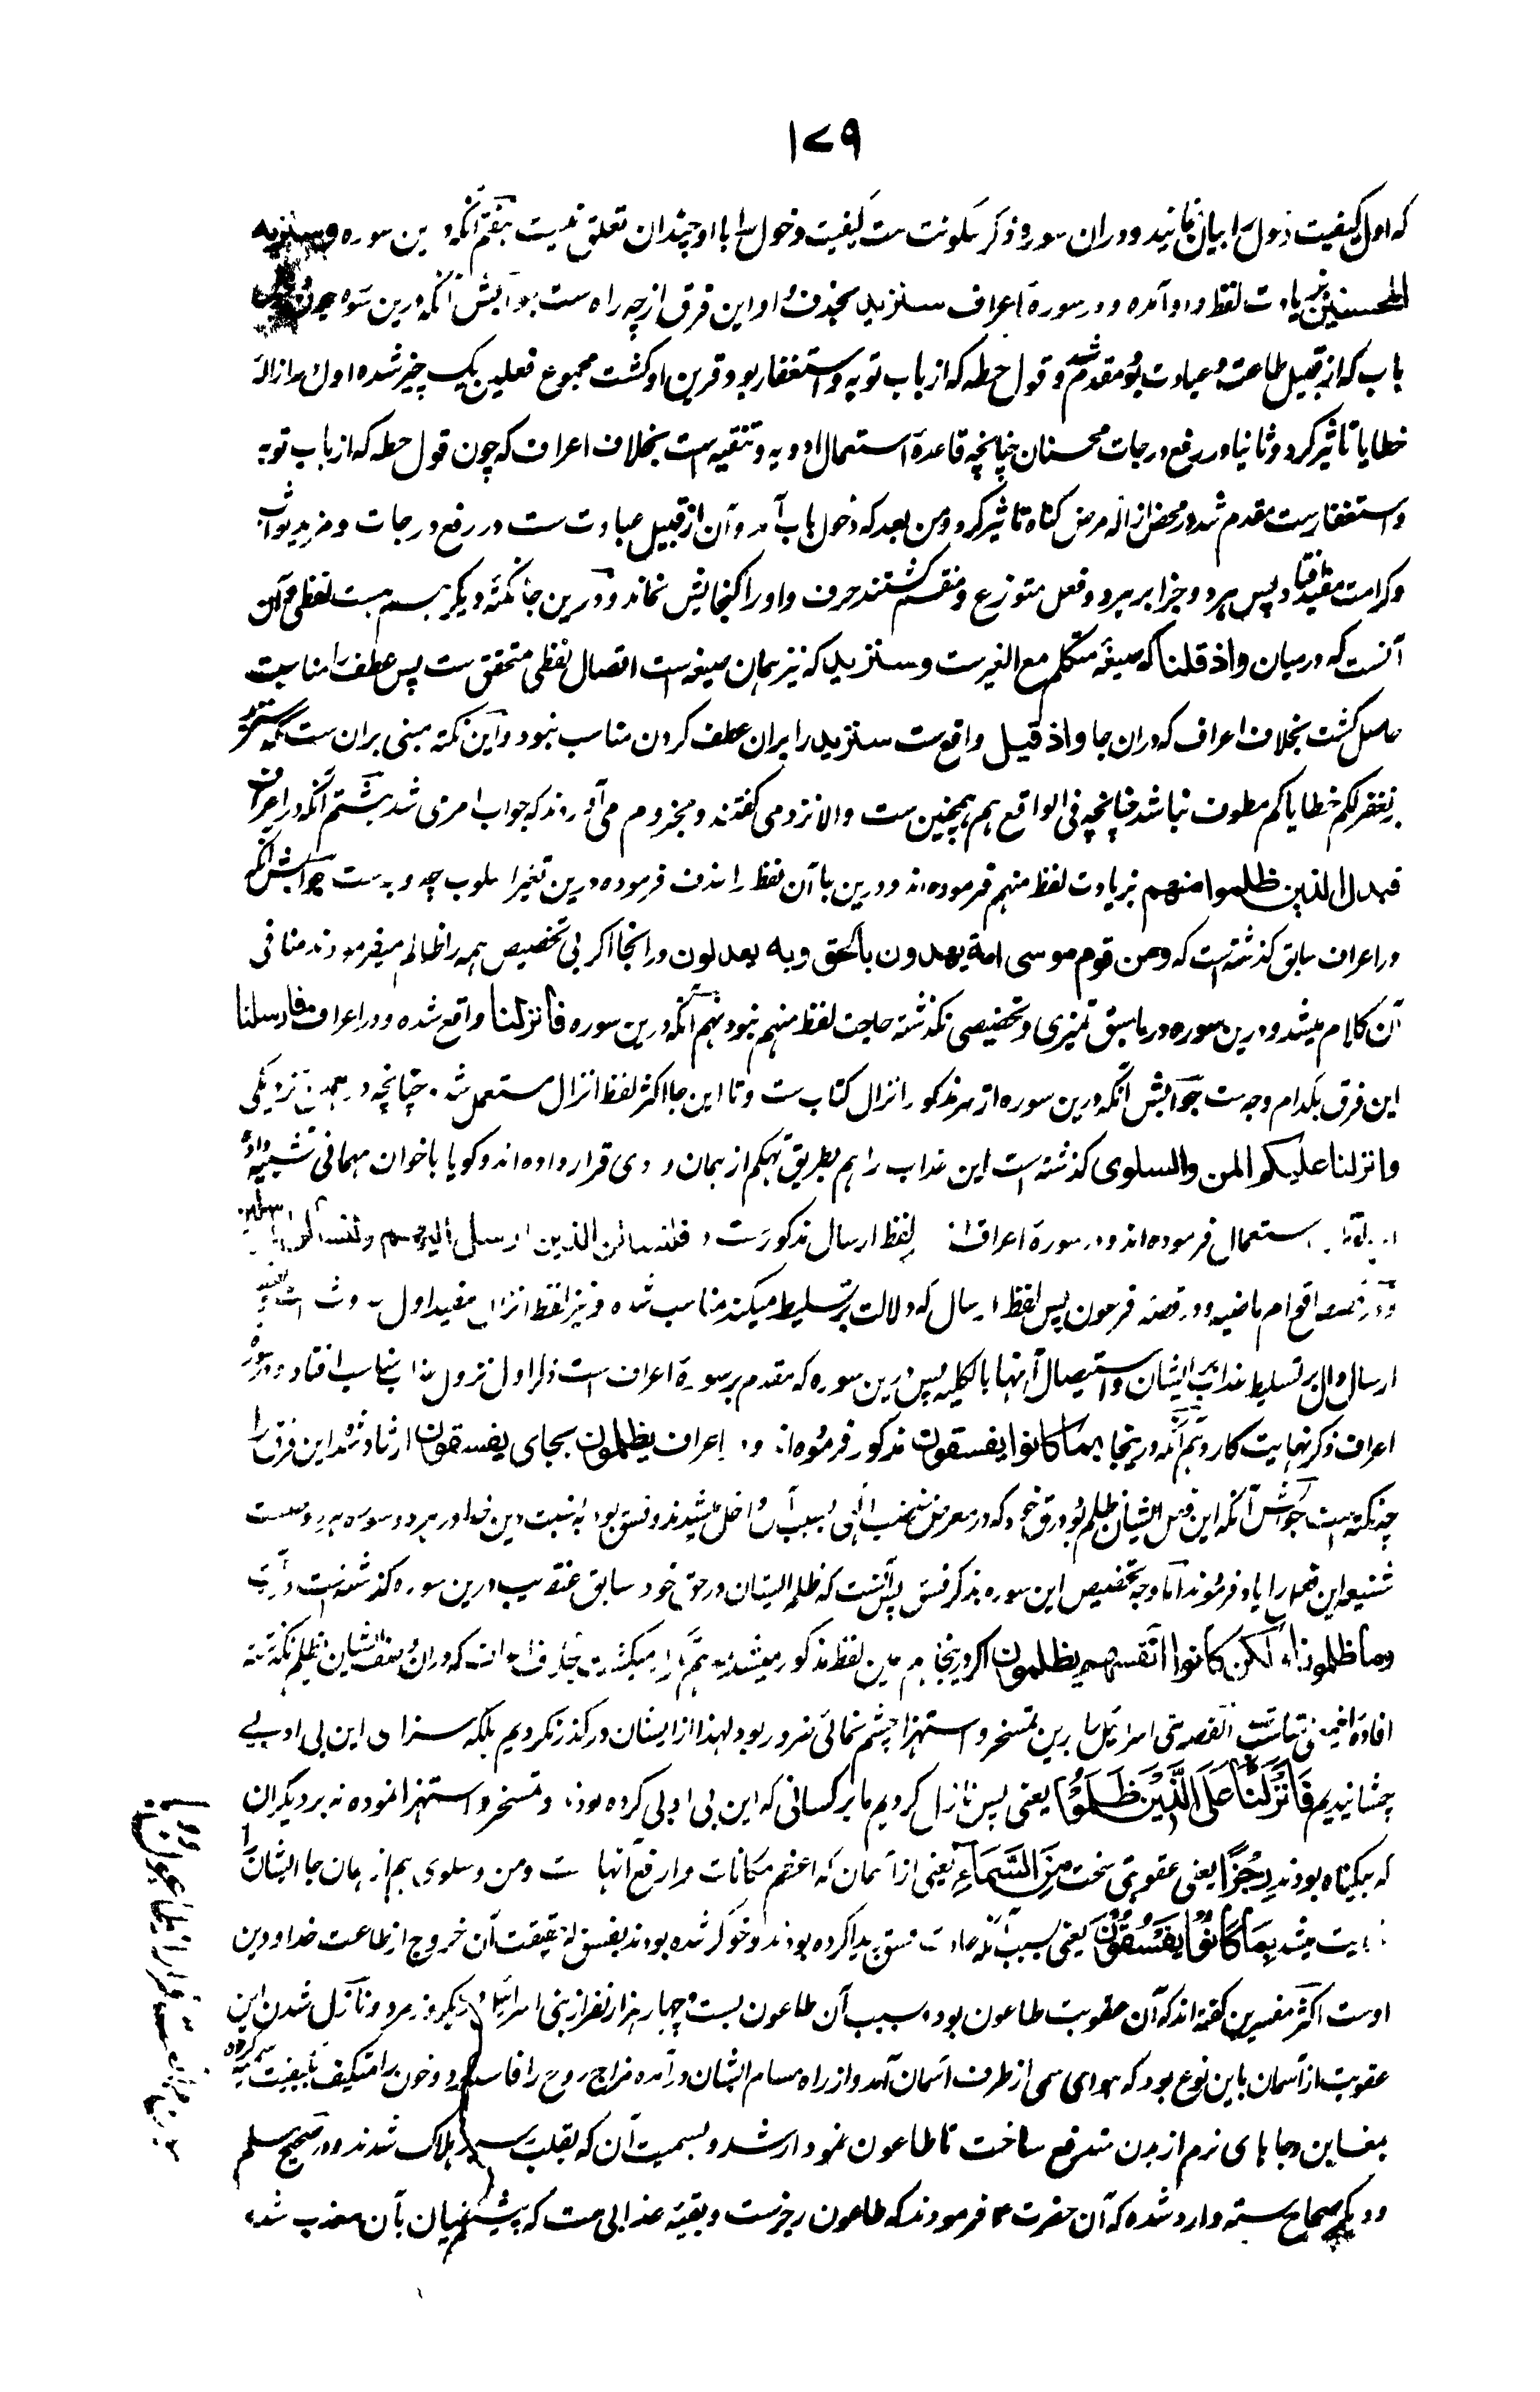 ۱۷۹
که اول کیفیت دخول را بیان نمایند و دران سوره ذکر سکونت ست کیفیت دخول را با او چندان تعلق نیست هفتم آنکه درین سوره وسنزید
المحسنین بزیادت لفظ واو آمده و در سورهٔ اعراف سنزید بحذف واو این فرق از چه راه ست جوابش آنکه درین سوره چون دخول
باب که از قبیل طاعت و عبادت بود مقدم شد و قول حطه که از باب توبه و استغفار بود قرین او گشت مجموع فعلین یک چیز شده اولا در ازالهٔ
خطایا تاثیر کرد و ثانیا در رفع درجات محسنان چنانچه قاعدهٔ استعمال ادویه و تنقیه است بخلاف اعراف که چون قول حطه که از باب توبه
و استغفارست مقدم شد در محض ازالهٔ مرض گناه تاثیر کرد و من بعد که دخول باب آمد و آن از قبیل عبادت ست در رفع درجات و مزید ثواب
و کرامت مفید افتاد پس هر دو جزا بر هر دو فعل متوزع و منقسم گشتند حرف واو را گنجایش نماند و درین جا نکتهٔ دیگر هم هست لفظی و آن
آنست که درمیان واذ قلنا که صیغهٔ متکلم مع الغیرست وسنزید که نیز همان صیغه است اتصال لفظی متحقق ست پس عطف را مناسبت
حاصل گشت بخلاف اعراف که دران جا واذ قیل واقع ست سنزید را بران عطف کردن مناسب نبود و این نکته مبنی بران ست که سنزید
بر نغفر لکم خطایاکم معطوف نباشد چنانچه فی الواقع هم همچنین ست والا نزد می گفتند و مجزوم می آوردند که جواب امر می شد هشتم آنکه در اعراف
فبدل الذین ظلموا منهم بزیادت لفظ منهم فرموده اند و درین جا آن لفظ را حذف فرموده درین تغیر اسلوب چه وجه ست جوابش آنکه
در اعراف سابق گذشته است که ومن قوم موسی امة یهدون بالحق وبه یعدلون در انجا اگر بی تخصیص همه را ظالم میفرمودند منافی
آن کلام میشد و درین سوره در ماسبق تمیزی و تخصیصی نگذشته حاجت لفظ منهم نبود نهم آنکه درین سوره فانزلنا واقع شده و در اعراف فارسلنا
این فرق بکدام وجه ست جوابش آنکه درین سوره از سر مذکور انزال کتاب ست و تا این جا اکثر لفظ انزال مستعمل شد چنانچه در همین نزدیکی
وانزلنا علیکم المن والسلوی گذشته است این عذاب را هم بطریق تهکم از همان وادی قرار داده اند و گویا با خوان مهمانی تشبیه داده
استعمال فرموده اند و در سورهٔ اعراف لفظ ارسال مذکورست فلنسئلن الذین ارسل الیهم ولنسئلن المرسلین
و در قصه اقوام ماضیه و در قصهٔ فرعون پس لفظ ارسال که دلالت بر تسلیط میکند مناسب شده و نیز لفظ انزال مفید اول حدوث است
ارسال دال بر تسلیط عذاب بر ایشان و استیصال آنها بالکلیه پس درین سوره که مقدم بر سورهٔ اعراف است ذکر اول نزول عذاب مناسب افتاد و در سوره
اعراف ذکر نهایت کار دهم آنکه درینجا بما کانوا یفسقون مذکور فرموده اند و در اعراف یظلمون بجای یفسقون ارشاد شد این فرق را
چه نکته است جوابش آنکه این فعل ایشان ظلم بود در حق خود که در معرض غضب الهی بسبب آن داخل میشدند و فسق بود به نسبت دین خدا در هر دو سوره هر دو صفت
شنیعه این فعل را یاد فرمودند اما وجه تخصیص این سوره بذکر فسق پس آنست که ظلم ایشان در حق خود سابق عنقریب درین سوره گذشته است در آیت
وما ظلمونا ولکن کانوا انفسهم یظلمون اگر درینجا هم همین لفظ مذکور میشد تکرار میگشت بخلاف اعراف که دران وصف ایشان بظلم نگذشته
القصه بنی اسرائیل را برین تمسخر و استهزا چشم نمائی ضرور بود لهذا از ایشان درگذر نکردیم بلکه سزای این بی ادبی
چشانیدیم فَاَنْزَلْنَا عَلَی الَّذِیْنَ ظَلَمُوْا یعنی پس نازل کردیم ما بر کسانی که این بی ادبی کرده بودند و تمسخر و استهزا نموده نه بر دیگران
که بیگناه بودند رِجْزًا یعنی عقوبتی سخت مِنَ السَّمَآءِ یعنی از آسمان که اعظم مکانات و ارفع آنهاست و من و سلوی هم از همان جا ایشان را
میشد بِمَا کَانُوْا یَفْسُقُوْنَ یعنی بسبب آنکه عادت فسق پیدا کرده بودند و خوگر شده بودند بفسق که حقیقت آن خروج از طاعت خدا و دین
اوست اکثر مفسرین گفته اند که آن عقوبت طاعون بود بسبب آن طاعون بست و چهار هزار نفر از بنی اسرائیل در یکروز مرد و نازل شدن این
عقوبت از آسمان باین نوع بود که هوای سمی از طرف آسمان آمد و از راه مسام ایشان درآمده مزاج روح را فاسد کرد و خون را متکیف بکیفیت سمیه کرده
بمغابن و جاهای نرم از بدن مندفع ساخت تا طاعون نمودار شد و بسمیت آن که بقلب رسید هلاک شدند و در صحیح مسلم
و دیگر صحاح سته وارد شده که آن حضرت ؐ فرمودند که طاعون رجزست و بقیهٔ عذابی ست که پیشینیان بآن معذب شده